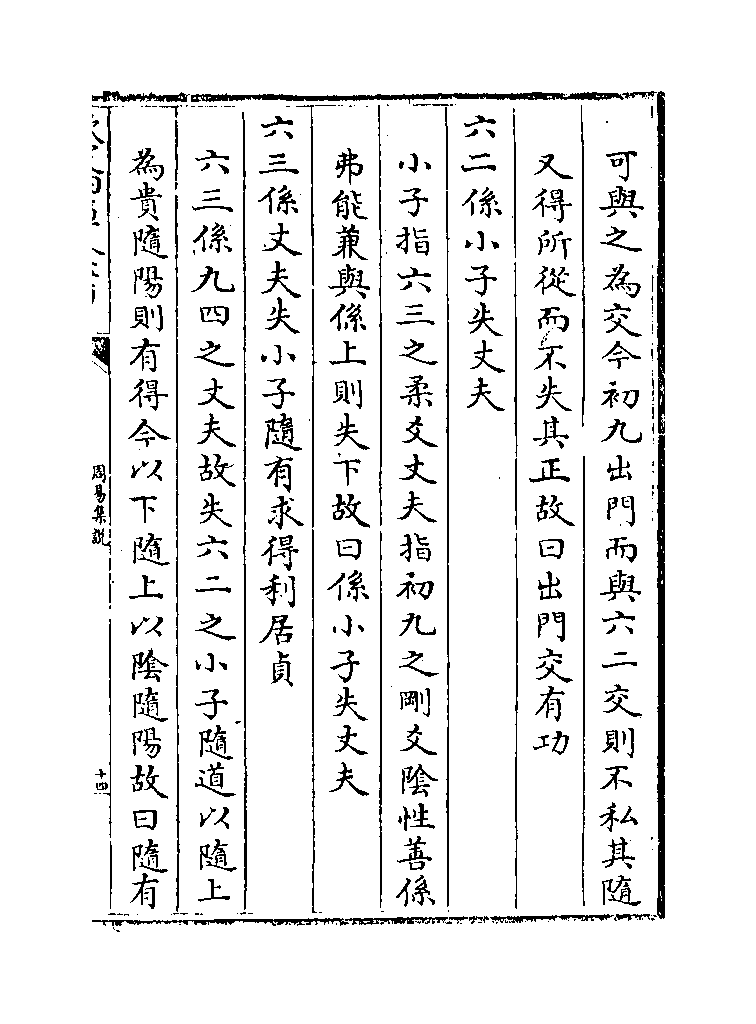 可與之為交今初九出門而與六二交則不私其隨
又得所從而不失其正故曰出門交有功
六二係小子失丈夫
小子指六三之柔爻丈夫指初九之剛爻陰性善係
弗能兼與係上則失下故曰係小子失丈夫
六三係丈夫失小子隨有求得利居貞
六三係九四之丈夫故失六二之小子隨道以隨上
為貴隨陽則有得今以下隨上以陰隨陽故曰隨有
周易集說
十四